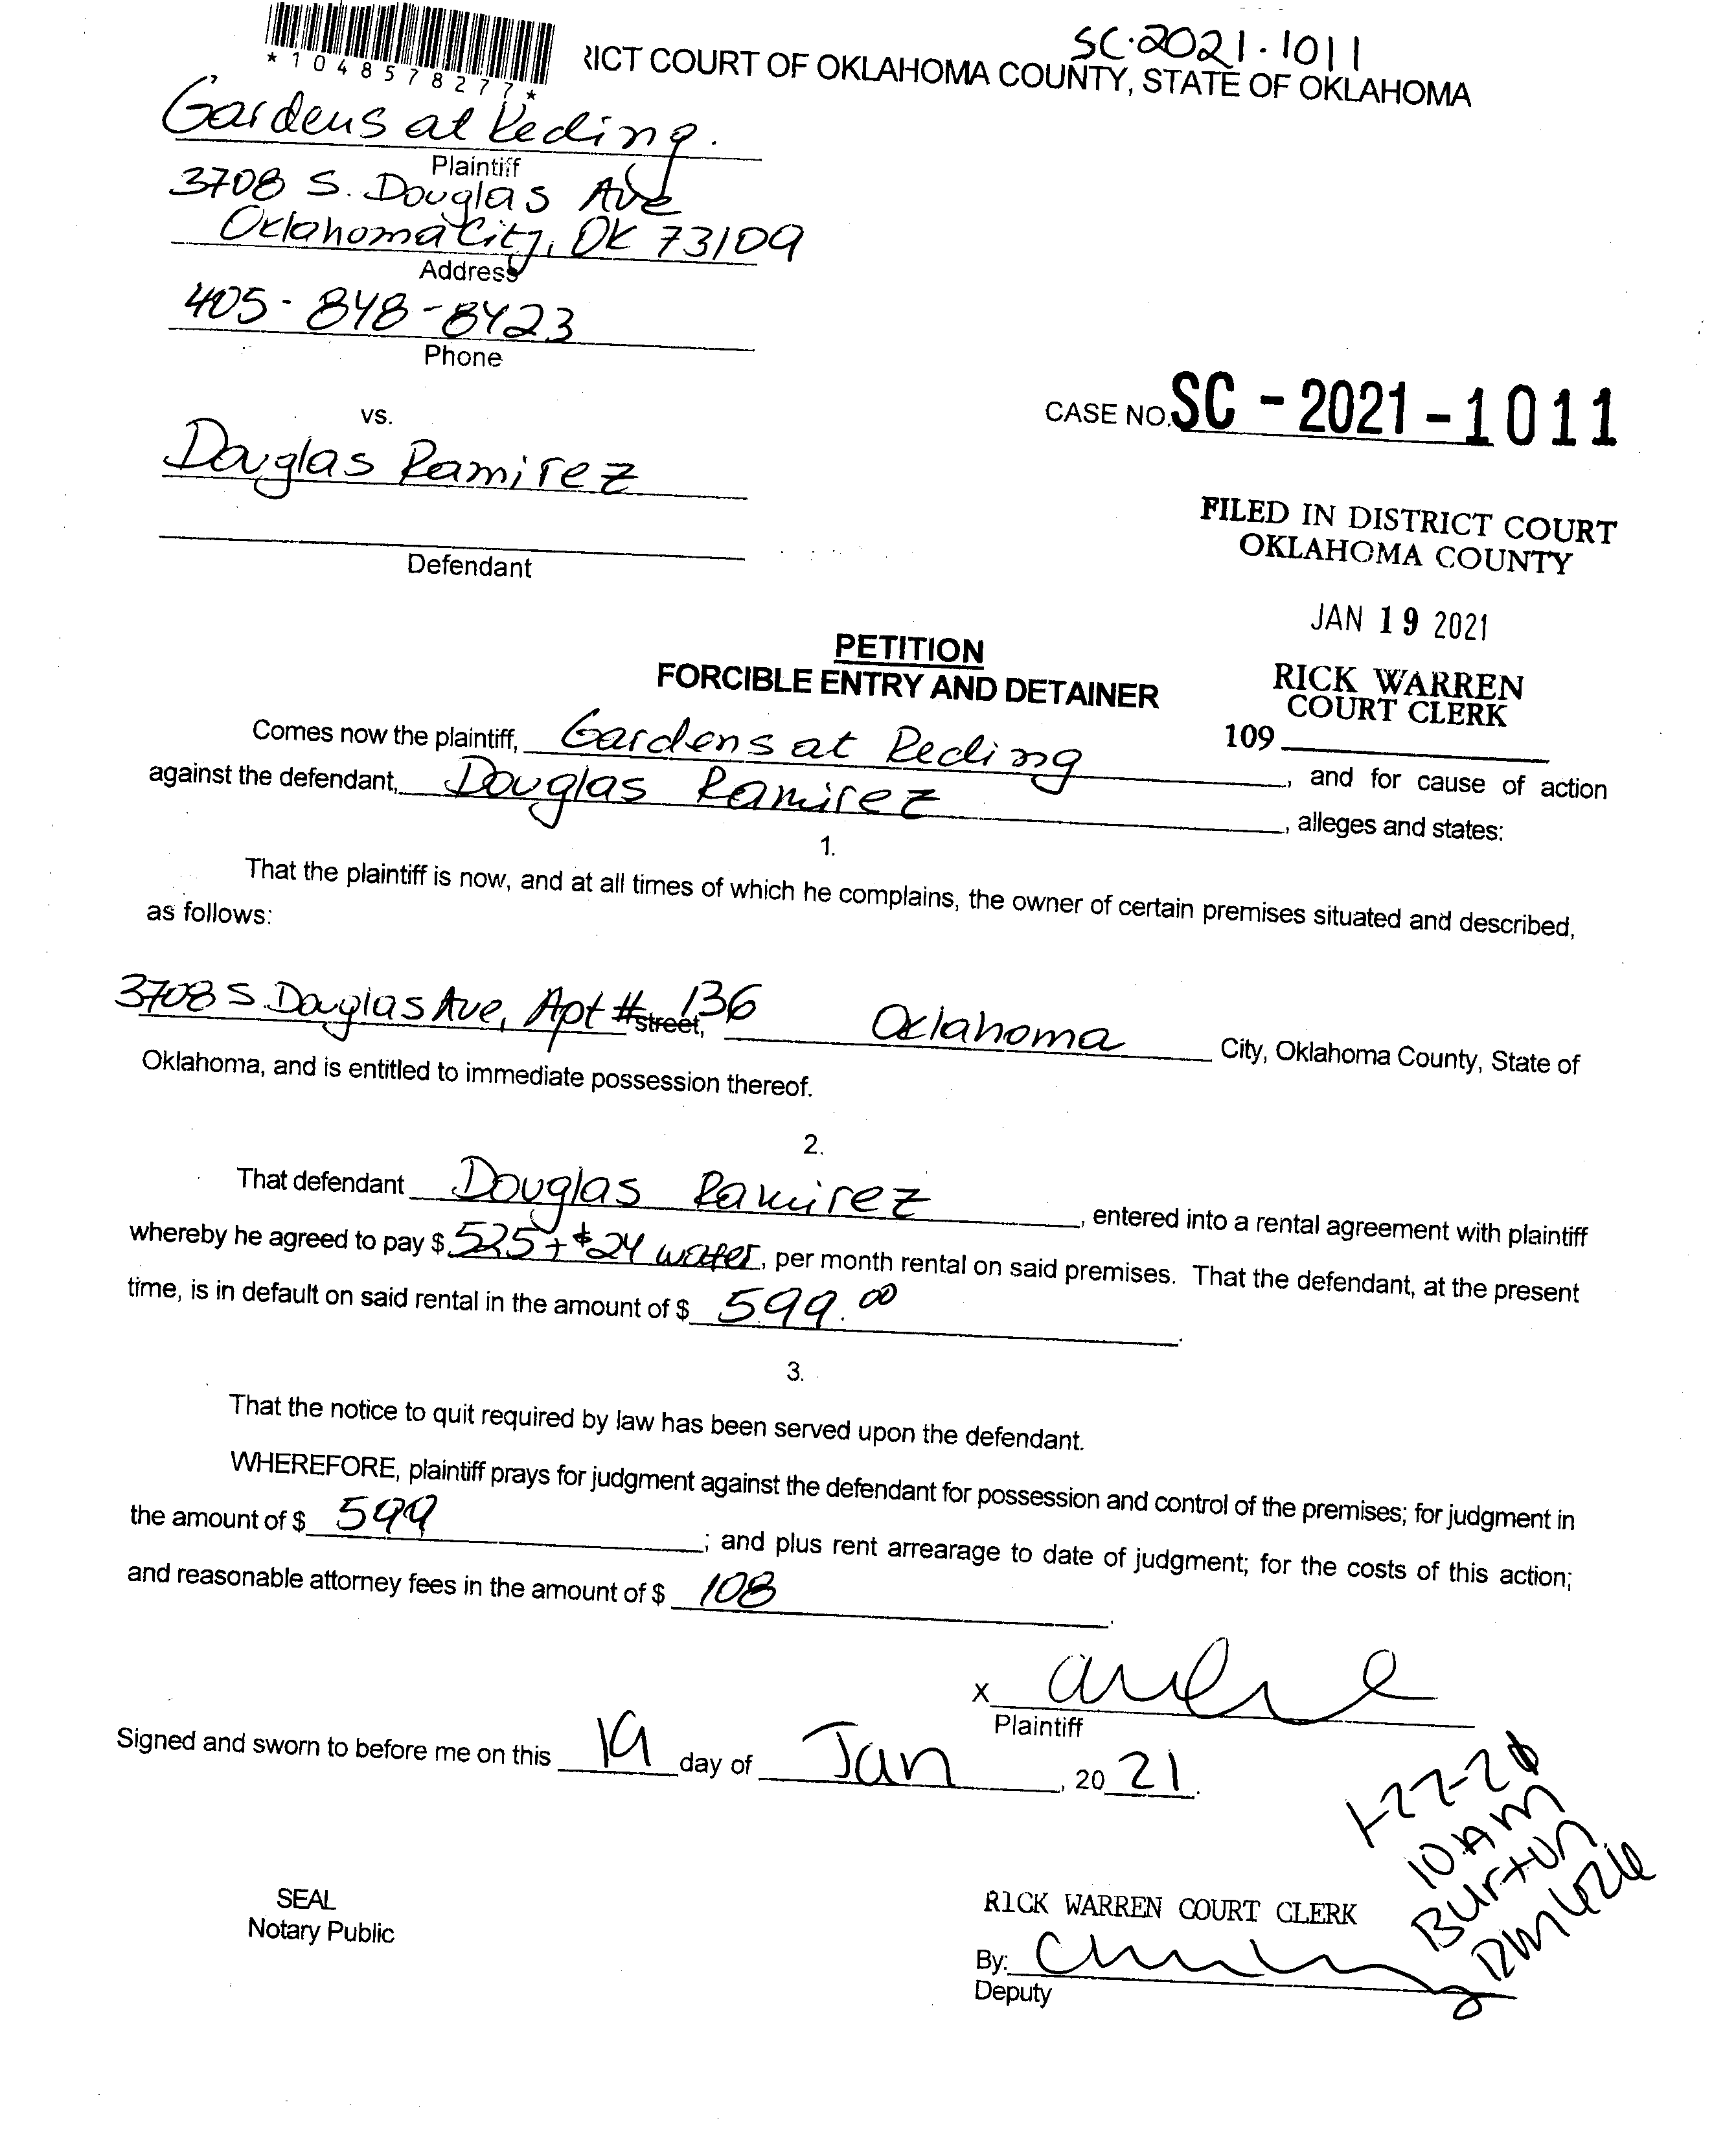 SC-2021-1011
*1048578277*
RICT COURT OF OKLAHOMA COUNTY, STATE OF OKLAHOMA
Gardens at Reding.
Plaintiff
3708 S. Douglas Ave
Oklahoma City, OK 73109
Address
405-848-8423
Phone
vs.
CASE NO. SC-2021-1011
Douglas Ramirez
Defendant
FILED IN DISTRICT COURT
OKLAHOMA COUNTY
JAN 19 2021
RICK WARREN
COURT CLERK
109
PETITION
FORCIBLE ENTRY AND DETAINER
Comes now the plaintiff, Gardens at Reding, and for cause of action
against the defendant, Douglas Ramirez, alleges and states:
1.
That the plaintiff is now, and at all times of which he complains, the owner of certain premises situated and described,
as follows:
3708 S. Douglas Ave, Apt # street, 136 Oklahoma City, Oklahoma County, State of
Oklahoma, and is entitled to immediate possession thereof.
2.
That defendant Douglas Ramirez, entered into a rental agreement with plaintiff
whereby he agreed to pay $ 525 + $24 water, per month rental on said premises. That the defendant, at the present
time, is in default on said rental in the amount of $ 599.00.
3.
That the notice to quit required by law has been served upon the defendant.
WHEREFORE, plaintiff prays for judgment against the defendant for possession and control of the premises; for judgment in
the amount of $ 599; and plus rent arrearage to date of judgment; for the costs of this action;
and reasonable attorney fees in the amount of $ 108.
X
Plaintiff
Signed and sworn to before me on this 19 day of Jan, 2021.
1-22-21
10 AM
Burton
RM
SEAL
Notary Public
RICK WARREN COURT CLERK
By:
Deputy